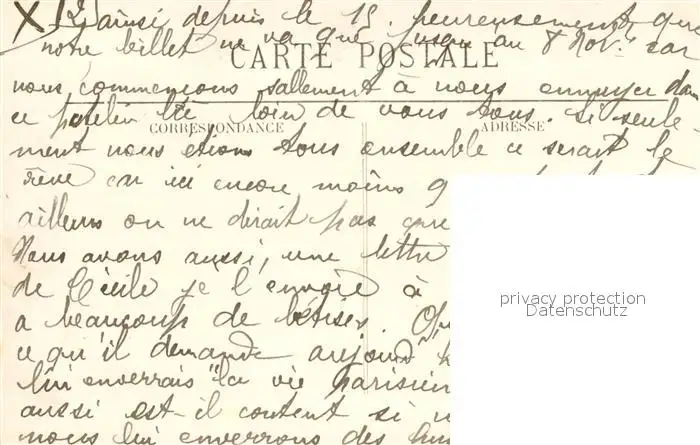 X (2) ainsi depuis le 15. heureusement que
notre billet ne va que jusqu'au 8 Nov. car
CARTE POSTALE
nous commençons salement à nous ennuyer dans
ce patelin loin de vous tous. Si seule
CORRESPONDANCE
ADRESSE
ment nous étions tous ensemble ce serait le
rêve car ici encore moins
ailleurs on ne dirait pas que
Nous avons aussi, une lettre
de Cécile je l'envoie à
a beaucoup de bêtises.
ce qu'il demande aujourd'h
lui enverrais "la vie parisien
aussi est-il content si n
nous lui enverrons des
privacy protection
Datenschutz